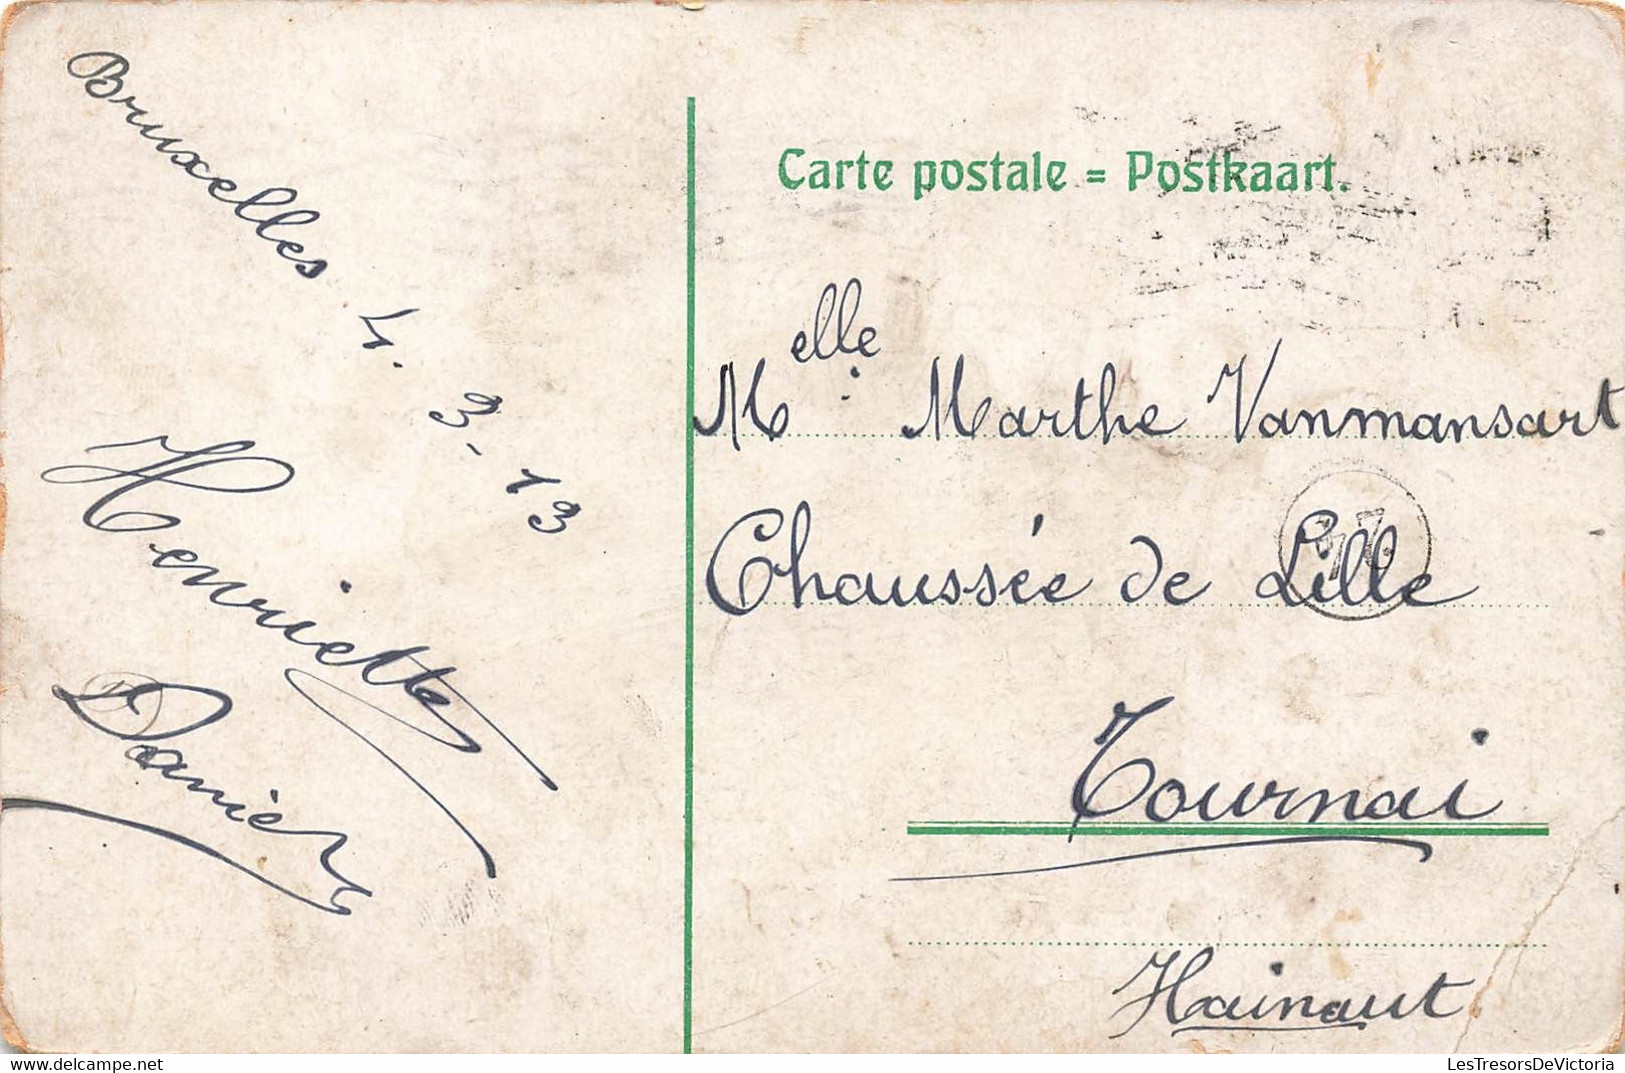 Bruxelles 4.3-13
Henriette
Daniel
Carte postale = Postkaart.
Melle. Marthe Vanmansart
Chaussée de Lille
Tournai
Hainaut
LesTresorsDeVictoria